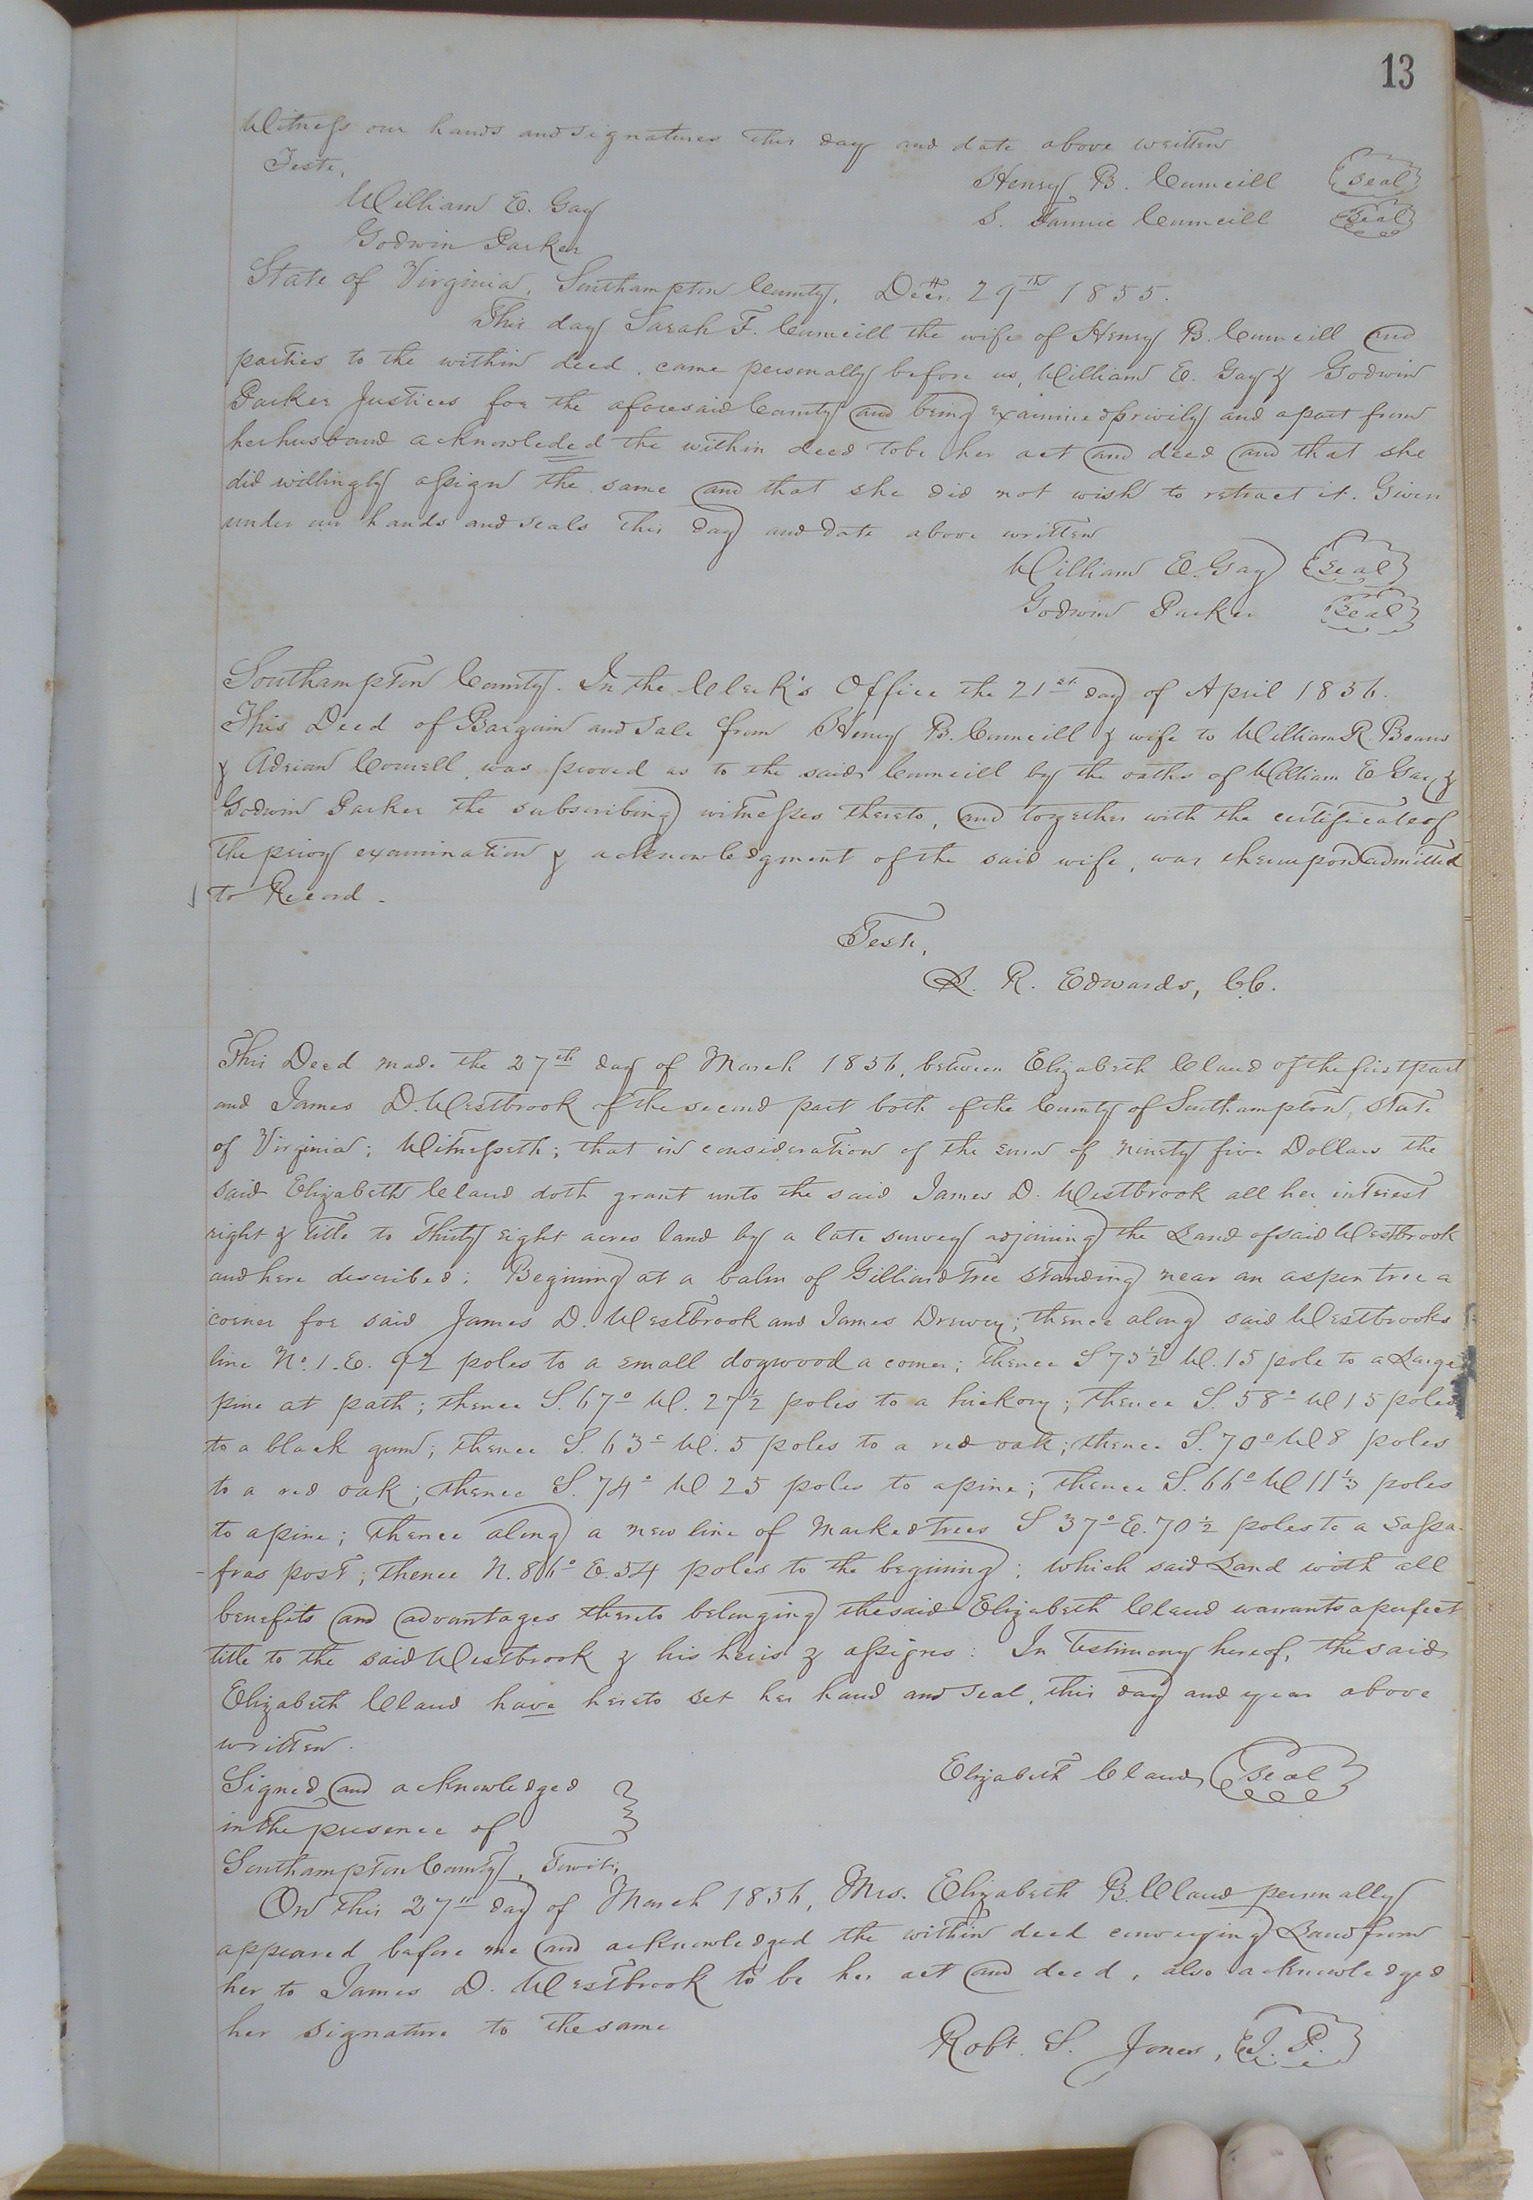 13
Witness our hands and signatures this day and date above written
Teste,
Henry B. Cumeill Seal
William E. Gay
S. Fannie Cumeill Seal
Godwin Parker
State of Virginia, Southampton County, Decr. 29th 1855.
This day Sarah F. Cumeill the wife of Henry B. Cumeill and
parties to the within deed, came personally before us, William E. Gay & Godwin
Parker Justices for the aforesaid County and being examined privily and apart from
her husband acknowleded the within deed to be her act and deed and that she
did willingly assign the same and that she did not wish to retract it. Given
under our hands and seals this day and date above written
William E. Gay Seal
Godwin Parker Seal
Southampton County. In the Clerk's Office the 21st day of April 1856.
This Deed of Bargain and Sale from Henry B. Cumeill & wife to William R. Beaus
& Adrian Cowell, was proved as to the said Cumeill by the oaths of William E Gay &
Godwin Parker the subscribing witnesses thereto, and together with the certificate of
the privy examination & acknowledgment of the said wife, was thereupon admitted
to Record.
Teste,
L. R. Edwards, C.C.
This Deed made the 27th day of March 1856, between Elizabeth Claud of the first part
and James D. Westbrook of the second part both of the County of Southampton, State
of Virginia; Witnesseth; that in consideration of the sum of ninety five Dollars the
said Elizabeth Claud doth grant unto the said James D. Westbrook all her interest
right & title to thirty eight acres land by a late survey adjoining the Land of said Westbrook
and here described: Begining at a balm of Gilliard tree standing near an aspen tree a
corner for said James D. Westbrook and James Drewry; thence along said Westbrooks
line No. 1. E. 92 poles to a small dogwood a corner; thence S 73½ W. 15 pole to a Large
pine at path; thence S. 67° W. 27½ poles to a hickory; thence S. 58° W 15 poles
to a black gum; thence S. 63° W. 5 poles to a red oak; thence S. 70° W 8 poles
to a red oak; thence S. 74° W 25 poles to a pine; thence S. 66° W 11⅓ poles
to a pine; thence along a new line of marked trees S 37° E. 70½ poles to a sassa-
-fras post; thence N. 86° E. 54 poles to the begining; which said Land with all
benefits and advantages thereto belonging the said Elizabeth Claud warrants a perfect
title to the said Westbrook & his heirs & assigns: In testimony hereof, the said
Elizabeth Claud have hereto set her hand and seal, this day and year above
written.
Elizabeth Claud Seal
Signed and acknowledged
in the presence of
Southampton County, Towit;
On this 27th day of March 1856, Mrs. Elizabeth B. Claud personally
appeared before me and acknowledged the within deed conveying Land from
her to James D. Westbrook to be her act and deed, also acknowledged
her signature to the same
Robt. S. Jones, J. P.